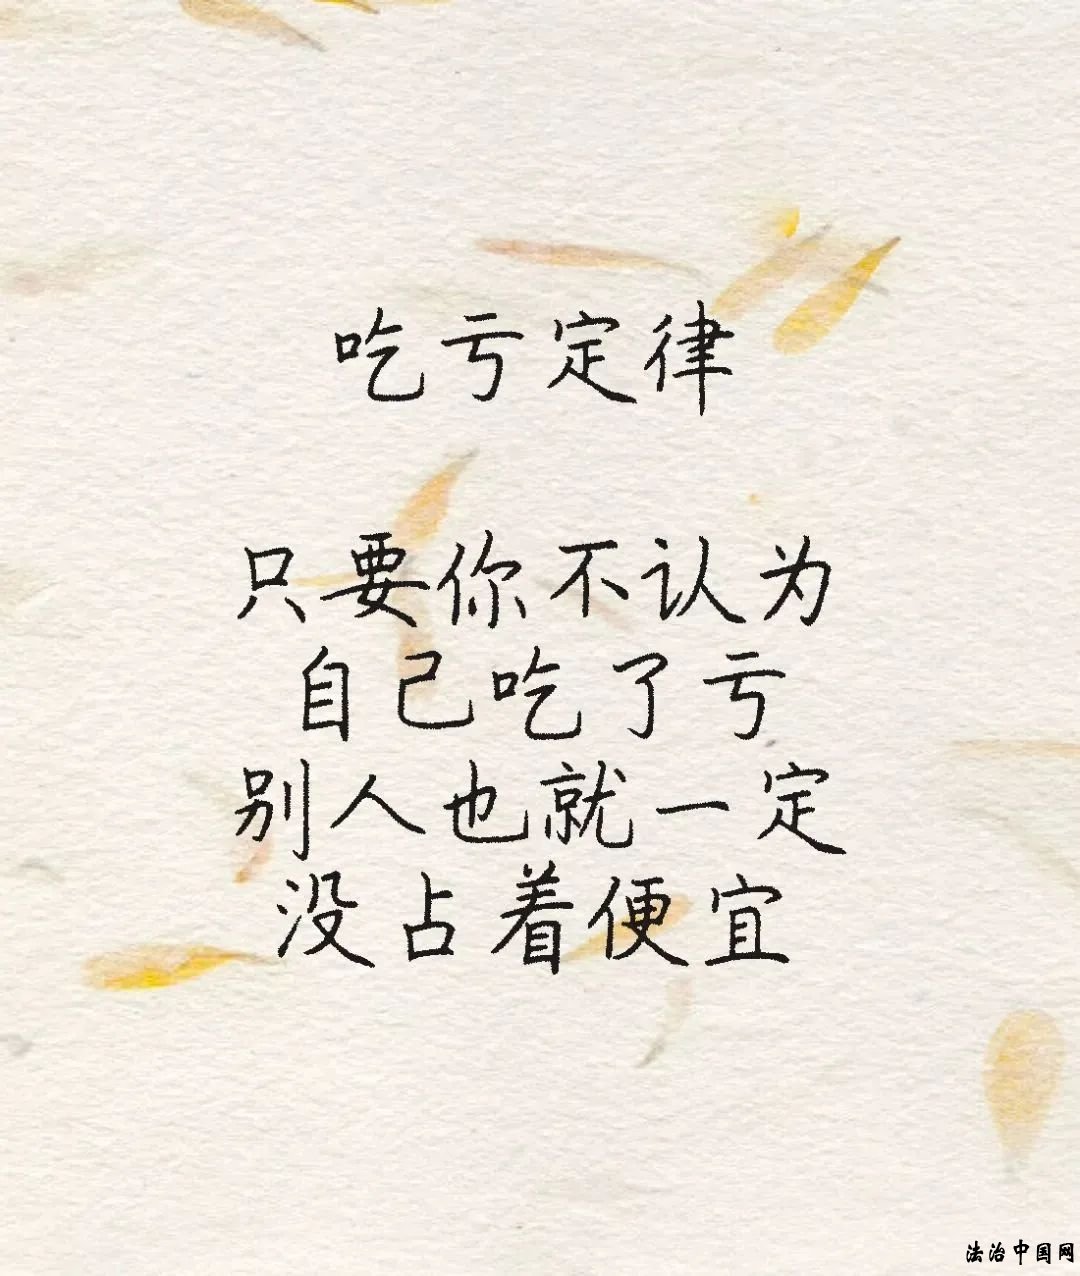 吃亏定律
只要你不认为
自己吃了亏
别人也就一定
没占着便宜
法治中国网